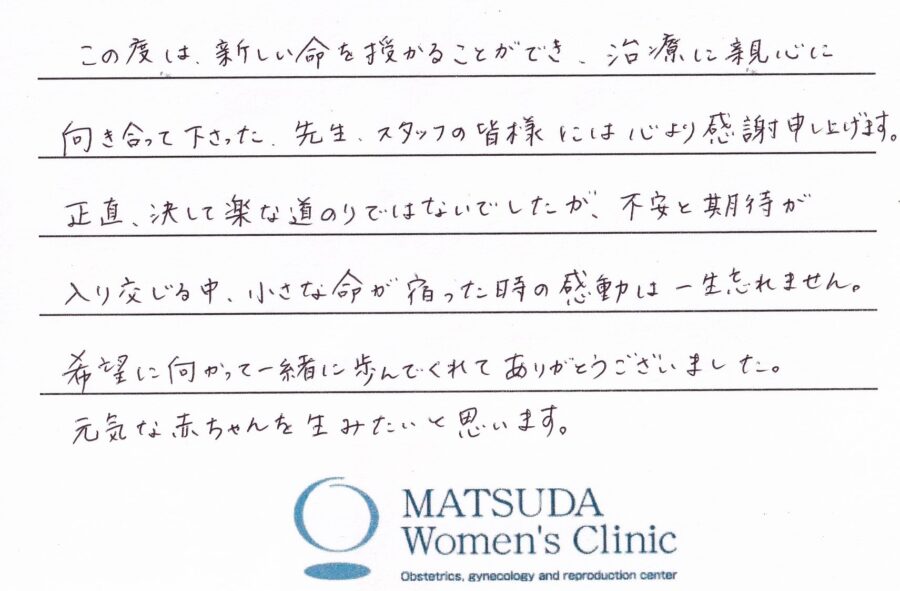 この度は、新しい命を授かることができ、治療に親心に
向き合って下さった、先生、スタッフの皆様には心より感謝申し上げます。
正直、決して楽な道のりではないでしたが、不安と期待が
入り交じる中、小さな命が宿った時の感動は一生忘れません。
希望に向かって一緒に歩んでくれてありがとうございました。
元気な赤ちゃんを生みたいと思います。
MATSUDA
Women's Clinic
Obstetrics, gynecology and reproduction center